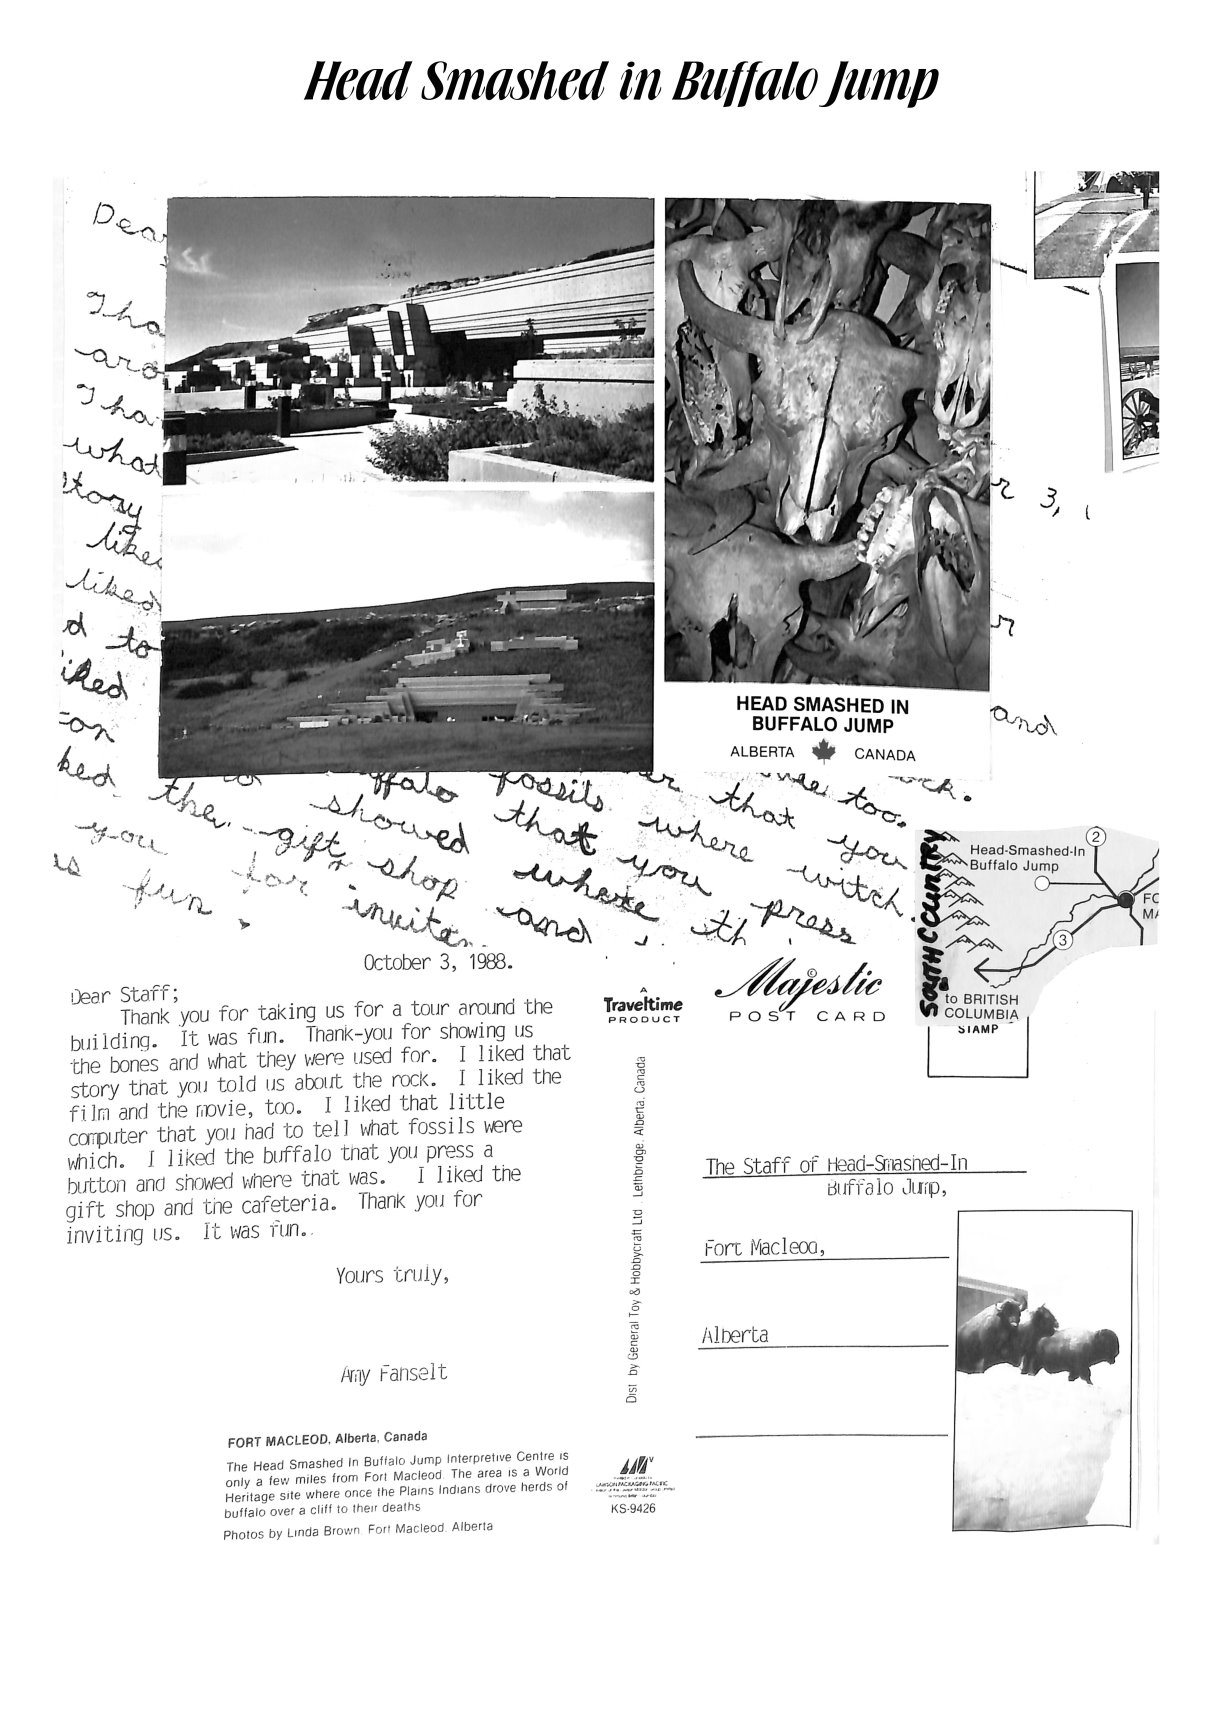 Head Smashed in Buffalo Jump
Dea
Tha
aro
Tha
what
story
like
liked
d to
iked
on
ked
r 3, 1
r
and
HEAD SMASHED IN
BUFFALO JUMP
ALBERTA CANADA
to ffalo fossils er too.
the showed that where that you
you gift shop you witch.
is for where press
fun. and th
SOUTH C CUNTRY
2
Head-Smashed-In
Buffalo Jump
FO
MA
3
to BRITISH
COLUMBIA
STAMP
October 3, 1988.
Dear Staff;
Thank you for taking us for a tour around the
building. It was fun. Thank-you for showing us
the bones and what they were used for. I liked that
story that you told us about the rock. I liked the
film and the movie, too. I liked that little
computer that you had to tell what fossils were
which. I liked the buffalo that you press a
button and showed where that was. I liked the
gift shop and the cafeteria. Thank you for
inviting us. It was fun.
Yours truly,
Amy Fanselt
FORT MACLEOD, Alberta, Canada
The Head Smashed In Buffalo Jump Interpretive Centre is
only a few miles from Fort Macleod. The area is a World
Heritage site where once the Plains Indians drove herds of
buffalo over a cliff to their deaths
Photos by Linda Brown Fort Macleod. Alberta
A
Traveltime
PRODUCT
Dist by General Toy & Hobbycraft Ltd Lethbridge, Alberta, Canada
KS-9426
Majestic
POST CARD
The Staff of Head-Smashed-In
Buffalo Jump,
Fort Macleod,
Alberta